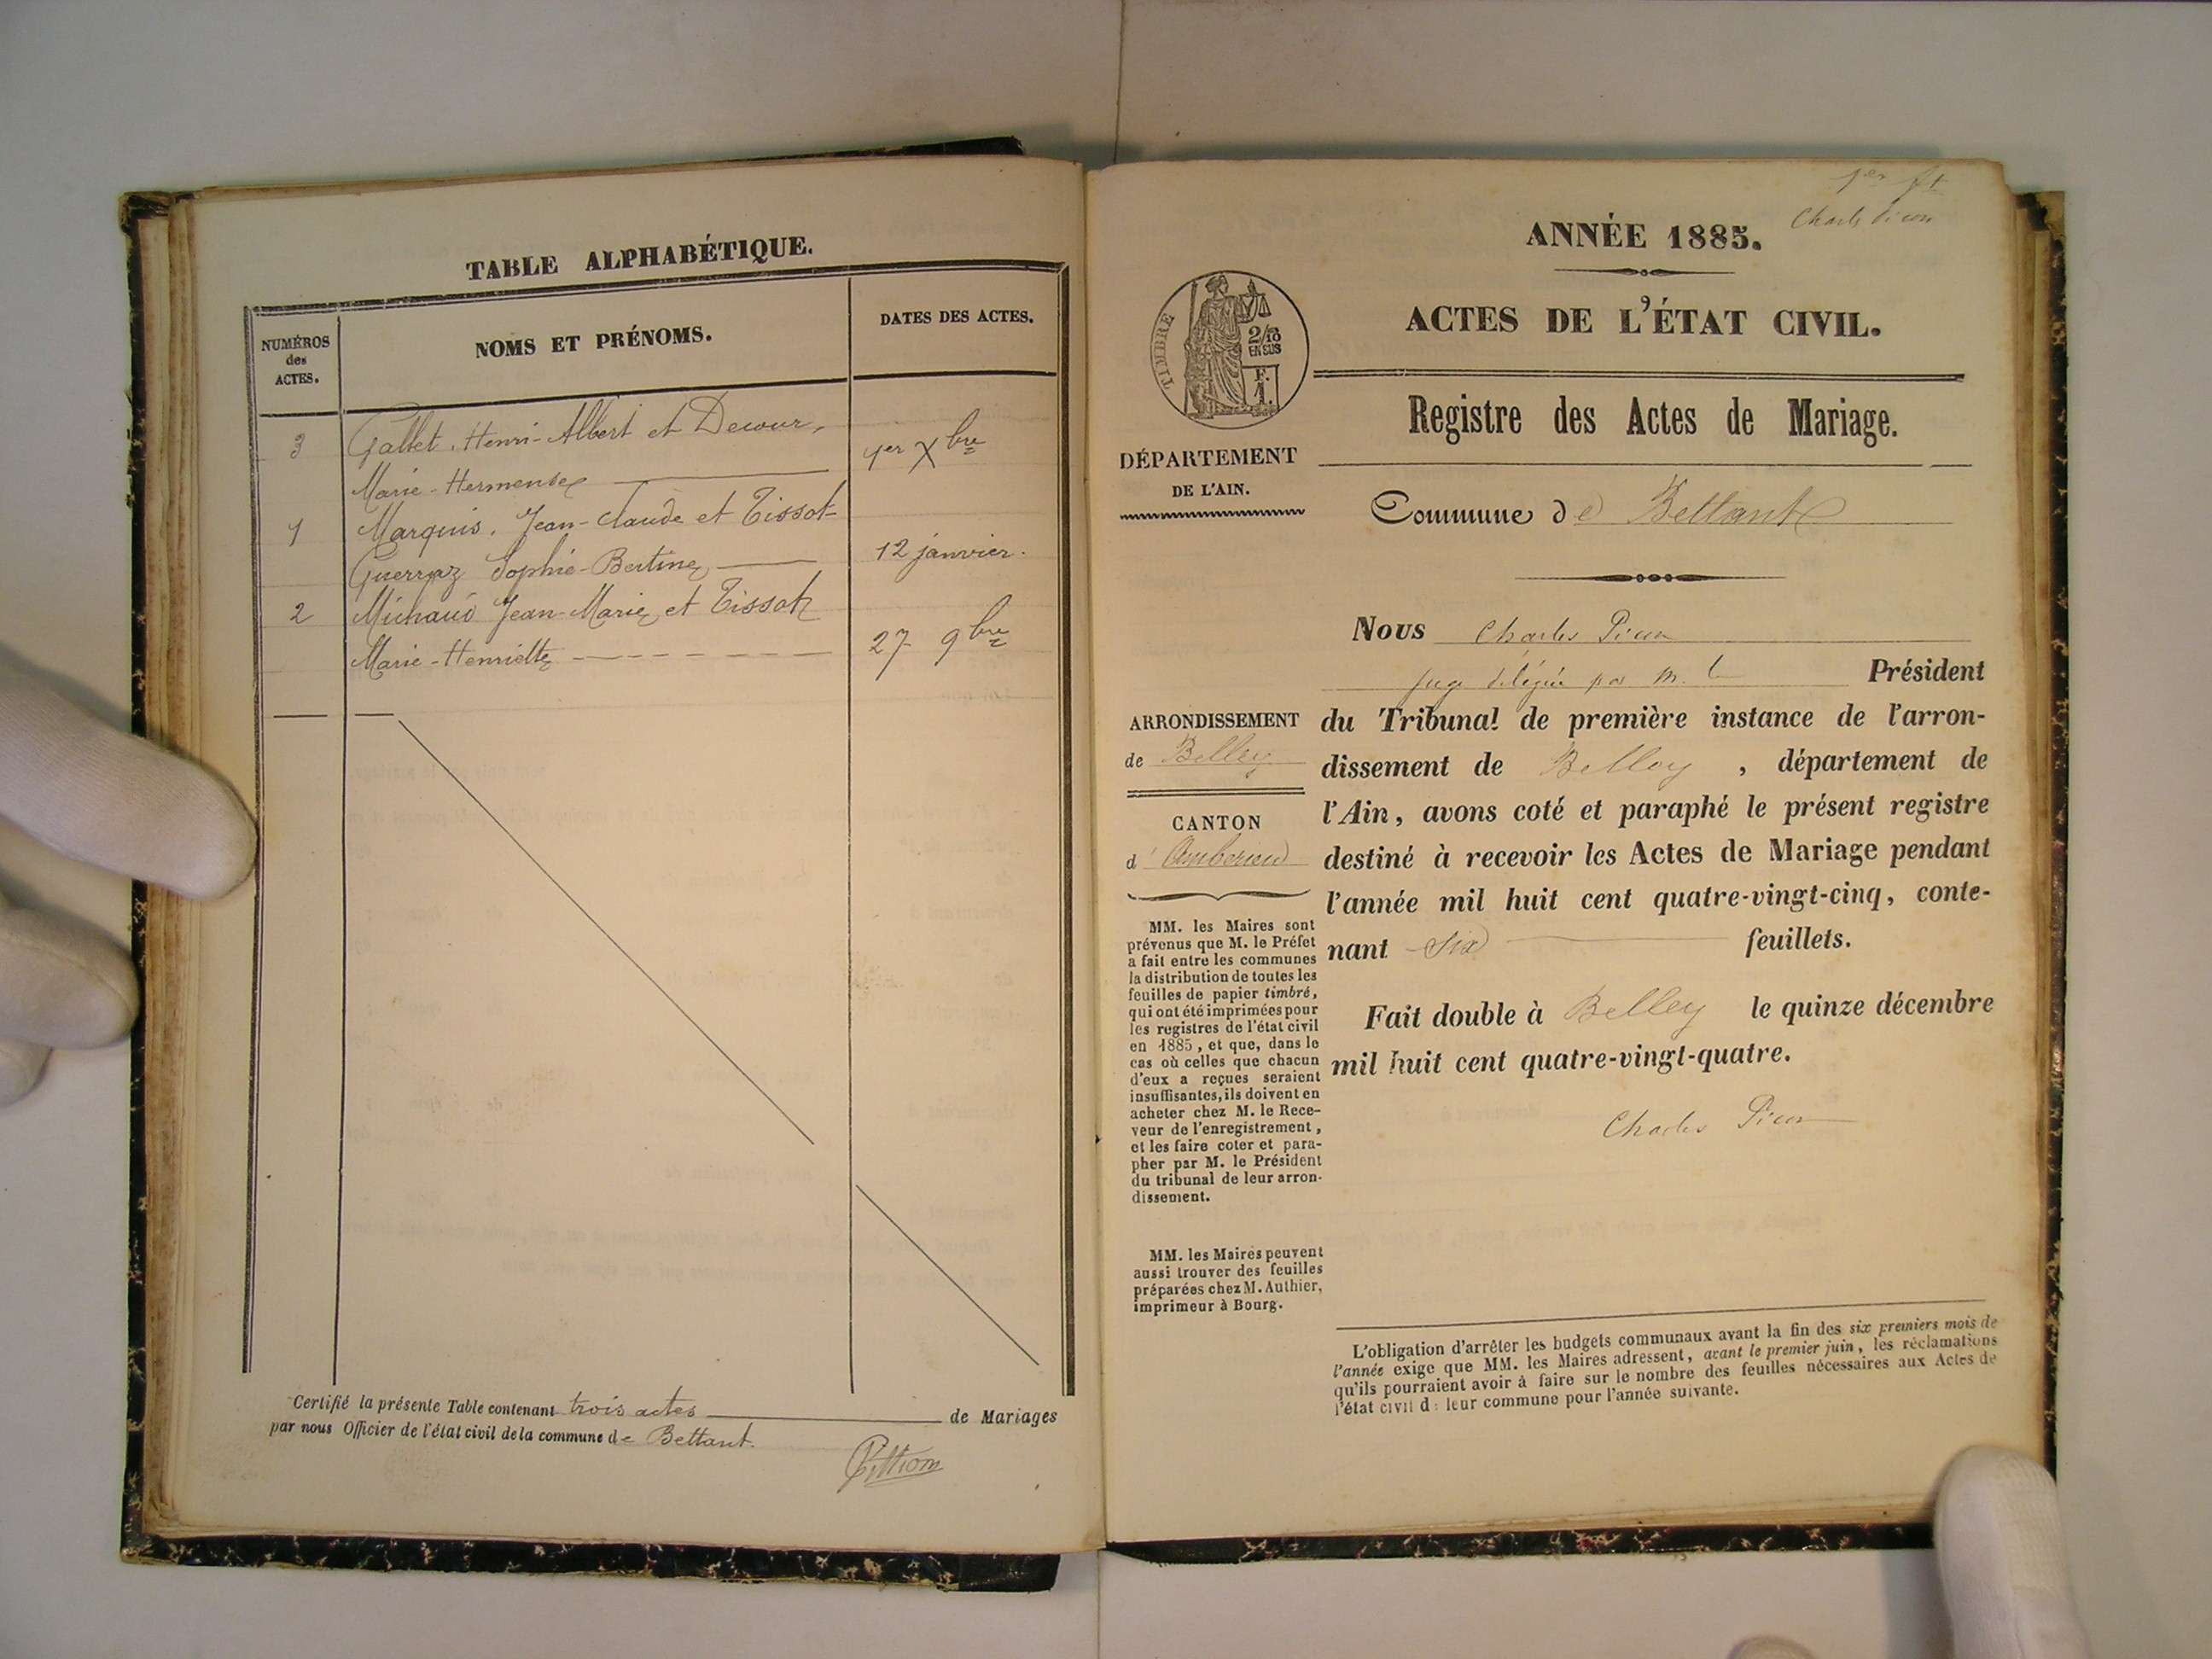 TABLE ALPHABÉTIQUE.
NUMÉROS
des
ACTES.
NOMS ET PRÉNOMS.
DATES DES ACTES.
3 Gallet, Henri-Albert et Decour, 1er Xbre
Marie-Hermense
1 Marquis, Jean-Claude et Tissot-
Guerraz Sophie-Bertine 12 janvier.
2 Michaud Jean-Marie et Tissot
Marie-Henriette 27 9bre
Certifié la présente Table contenant trois actes de Mariages
par nous Officier de l'état civil de la commune de Bettant.
1er ft
Charles Picon
ANNÉE 1885.
ACTES DE L'ÉTAT CIVIL.
TIMBRE
2/10
EN SUS
F.
1.
Registre des Actes de Mariage.
DÉPARTEMENT
DE L'AIN.
Commune de Bettant
Nous Charles Picon
juge délégué par M. le Président
ARRONDISSEMENT
de Belley
CANTON
d'Ambérieu
du Tribunal de première instance de l'arron-
dissement de Belley, département de
l'Ain, avons coté et paraphé le présent registre
destiné à recevoir les Actes de Mariage pendant
l'année mil huit cent quatre-vingt-cinq, conte-
nant six feuillets.
Fait double à Belley le quinze décembre
mil huit cent quatre-vingt-quatre.
Charles Picon
MM. les Maires sont
prévenus que M. le Préfet
a fait entre les communes
la distribution de toutes les
feuilles de papier timbré,
qui ont été imprimées pour
les registres de l'état civil
en 1885, et que, dans le
cas où celles que chacun
d'eux a reçues seraient
insuffisantes, ils doivent en
acheter chez M. le Rece-
veur de l'enregistrement,
et les faire coter et para-
pher par M. le Président
du tribunal de leur arron-
dissement.
MM. les Maires peuvent
aussi trouver des feuilles
préparées chez M. Authier,
imprimeur à Bourg.
L'obligation d'arrêter les budgets communaux avant la fin des six premiers mois de
l'année exige que MM. les Maires adressent, avant le premier juin, les réclamations
qu'ils pourraient avoir à faire sur le nombre des feuilles nécessaires aux Actes de
l'état civil de leur commune pour l'année suivante.